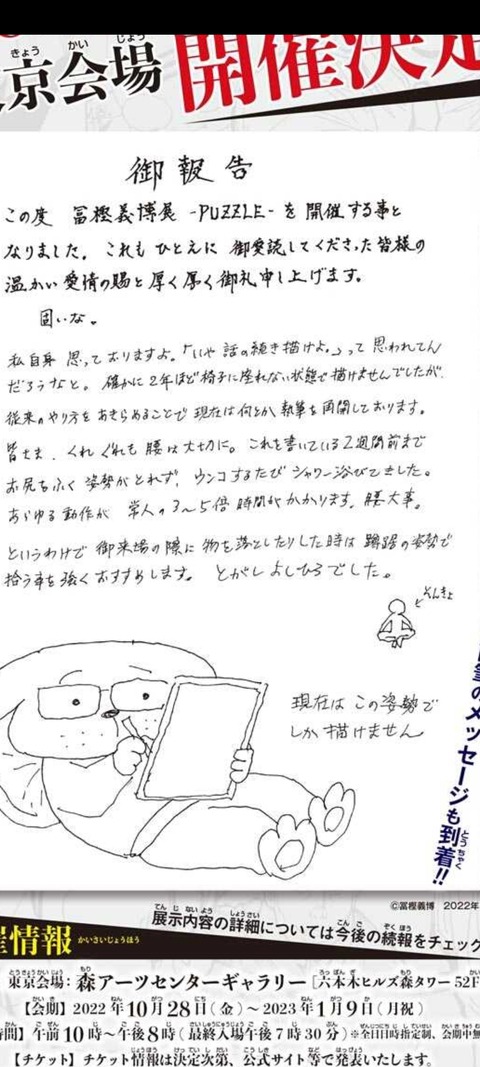 京会場
きょう かい じょう
開催決定
御報告
この度 冨樫義博展 -PUZZLE- を 開催する事と
なりました。これも ひとえに 御愛読してくださった皆様の
温かい愛情の賜と厚く厚く御礼申し上げます。
固いな。
私自身 思っておりますよ。「いや 話の続き描けよ。」って 思われてん
だろうなと。確かに2年ほど椅子に座れない状態で描けませんでしたが、
従来のやり方をあきらめることで 現在は何とか 執筆を再開しております。
皆さま、くれぐれも 腰は大切に。これを書いている2週間前まで
お尻もふく 姿勢がとれず、ウンコするたび シャワー浴びてました。
あらゆる動作が 常人の3~5倍 時間がかかります。腰大事。
というわけで 御来場の際に 物を落としたりした時は 蹲踞の姿勢で
拾う事を強くおすすめします。 とがし よしひろでした。
そんきょ
現在は この姿勢で
しか描けません
のメッセージも到着!!
とうちゃく
©冨樫義博 2022年
展示内容の詳細については今後の続報をチェック
てん じ ない よう しょうさい こん ご ぞく ほう
催情報 かいさいじょうほう
東京会場:森アーツセンターギャラリー[六本木ヒルズ森タワー52F
とうきょうかいじょう もり ろっ ぽん ぎ もり
【会期】2022年10月28日(金)~2023年1月9日(月祝)
時間】午前10時~午後8時(最終入場午後7時30分)※全日日時指定制、会期中無
【チケット】チケット情報は決定次第、公式サイト等で発表いたします。